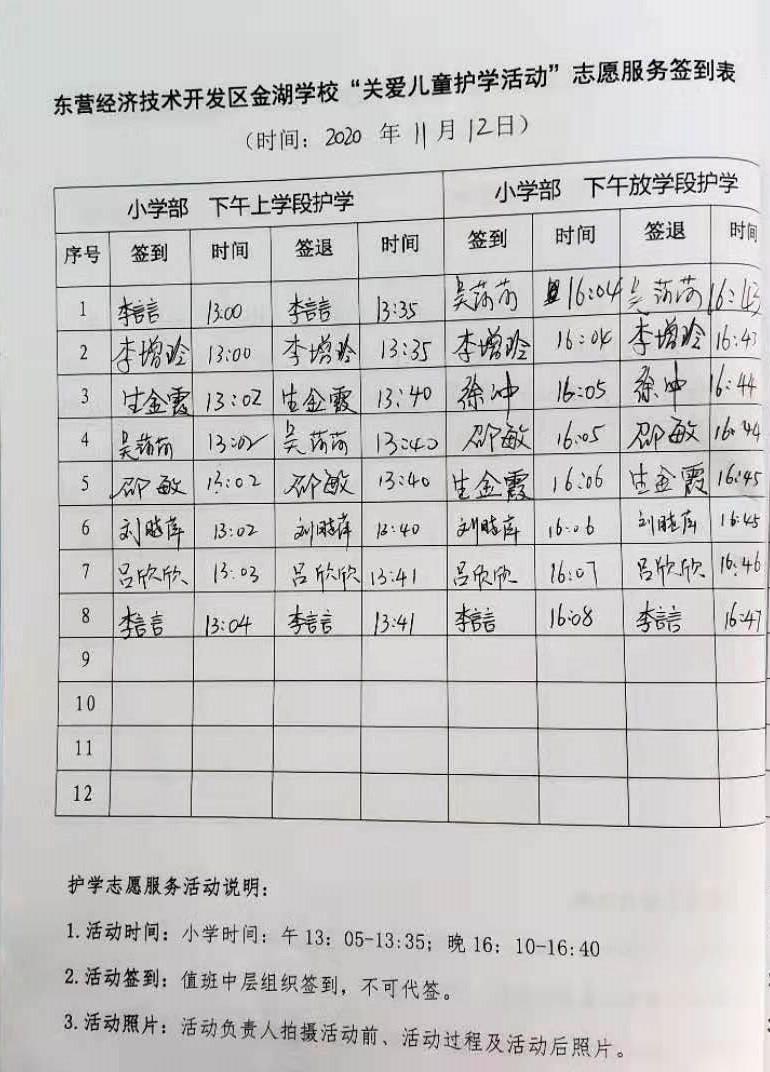 东营经济技术开发区金湖学校“关爱儿童护学活动”志愿服务签到表
（时间：2020 年 11 月 12日）
小学部 下午上学段护学 小学部 下午放学段护学
序号 签到 时间 签退 时间 签到 时间 签退 时间
1 李言言 13:00 李言言 13:35 吴萍萍 16:04 吴萍萍 16:43
2 李增玲 13:00 李增玲 13:35 李增玲 16:04 李增玲 16:43
3 生金霞 13:02 生金霞 13:40 徐冲 16:05 徐冲 16:44
4 吴萍萍 13:02 吴萍萍 13:40 邵敏 16:05 邵敏 16:44
5 邵敏 13:02 邵敏 13:40 生金霞 16:06 生金霞 16:45
6 刘晓萍 13:02 刘晓萍 13:40 刘晓萍 16:06 刘晓萍 16:45
7 吕欣欣 13:03 吕欣欣 13:41 吕欣欣 16:07 吕欣欣 16:46
8 李言言 13:04 李言言 13:41 李言言 16:08 李言言 16:47
9
10
11
12
护学志愿服务活动说明：
1.活动时间：小学时间：午 13：05-13:35；晚 16：10-16:40
2.活动签到：值班中层组织签到，不可代签。
3.活动照片：活动负责人拍摄活动前、活动过程及活动后照片。